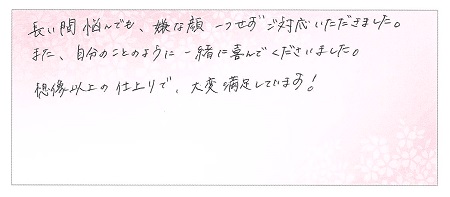 長い間悩んでも、嫌な顔一つせずご対応いただきました。
また、自分のことのように一緒に喜んでくださいました。
想像以上の仕上りで、大変満足しています!